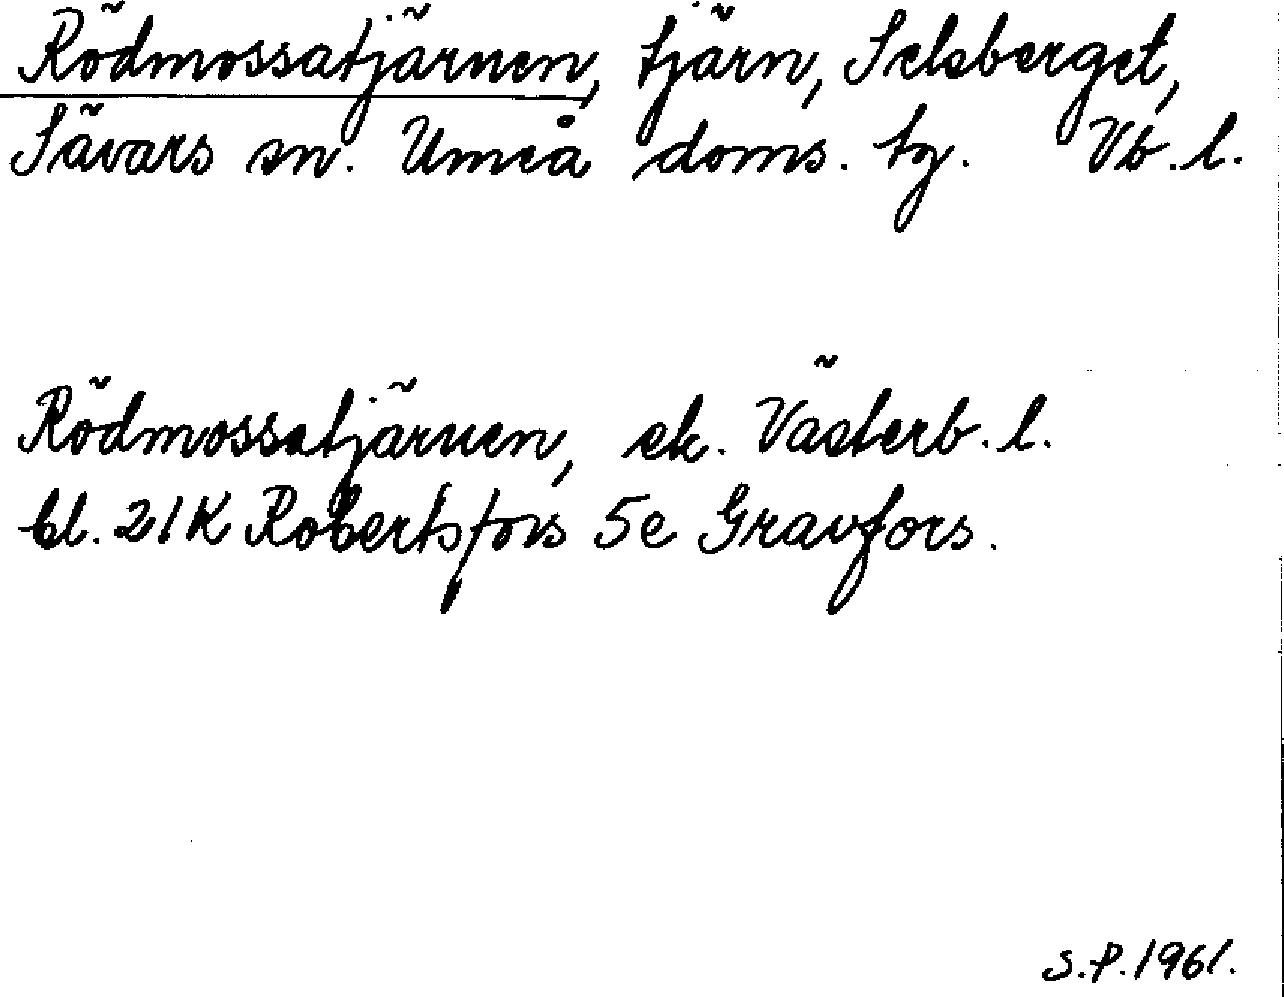 Rödmossatjärnen, tjärn, Selsberget,
Sävars sn. Umeå doms. tg. Vb. l.
Rödmossatjärnen, ek. Västerb. l.
bl. 21K Robertsfors 5e Gravfors.
S.P. 1961.